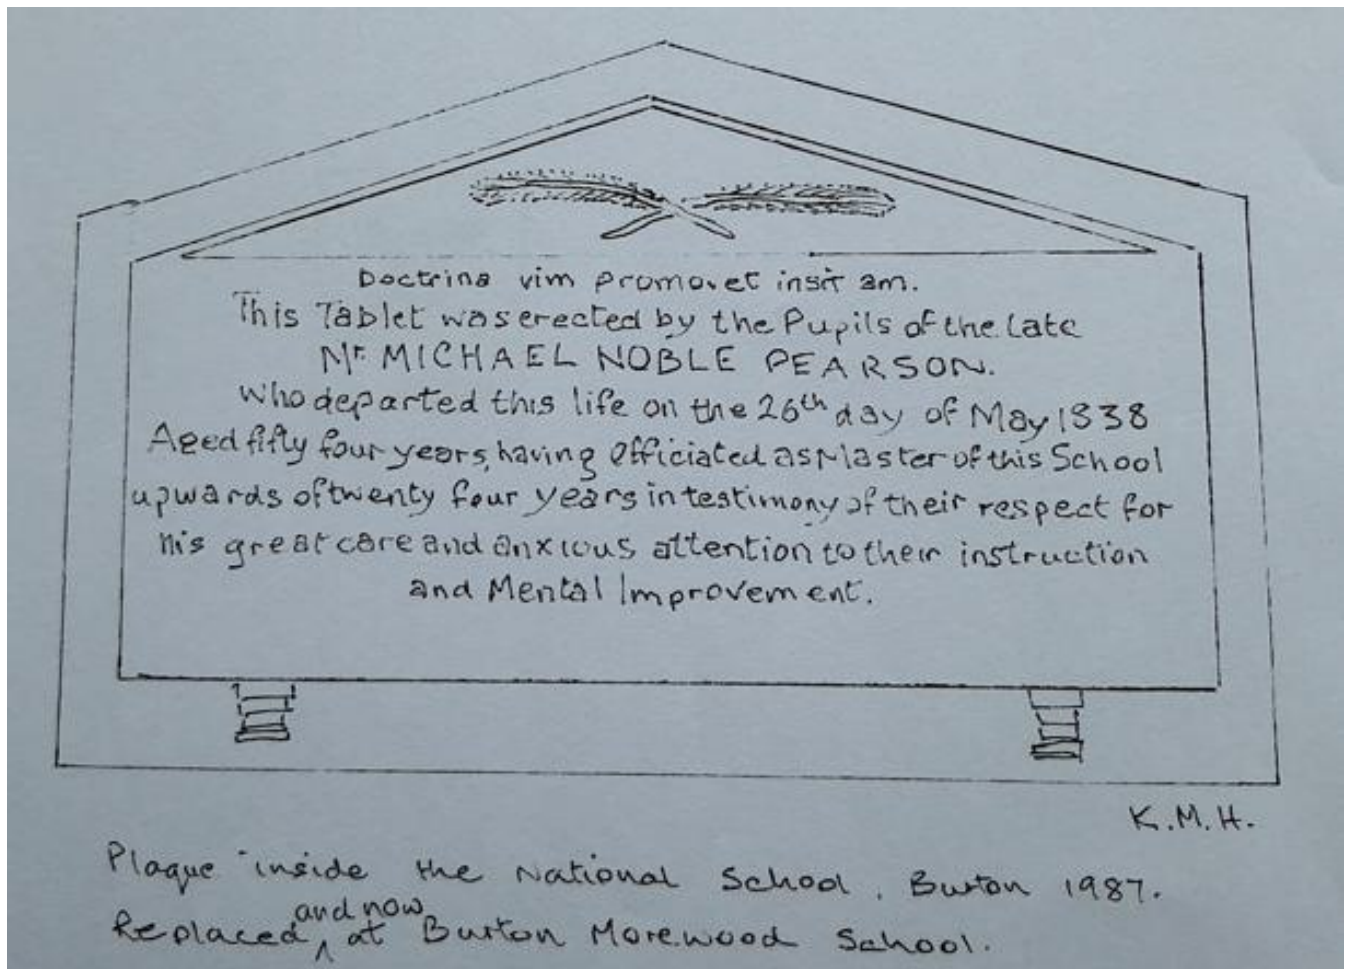 Doctrina vim promovet insit am.
This Tablet was erected by the Pupils of the late
Mr. MICHAEL NOBLE PEARSON.
Who departed this life on the 26th day of May 1838
Aged fifty four years, having efficiated as Master of this School
upwards of twenty four years in testimony of their respect for
his great care and anxious attention to their instruction
and Mental Improvement.
K.M.H.
Plaque inside the National School, Burton 1987.
Replaced and now at Burton Morewood School.